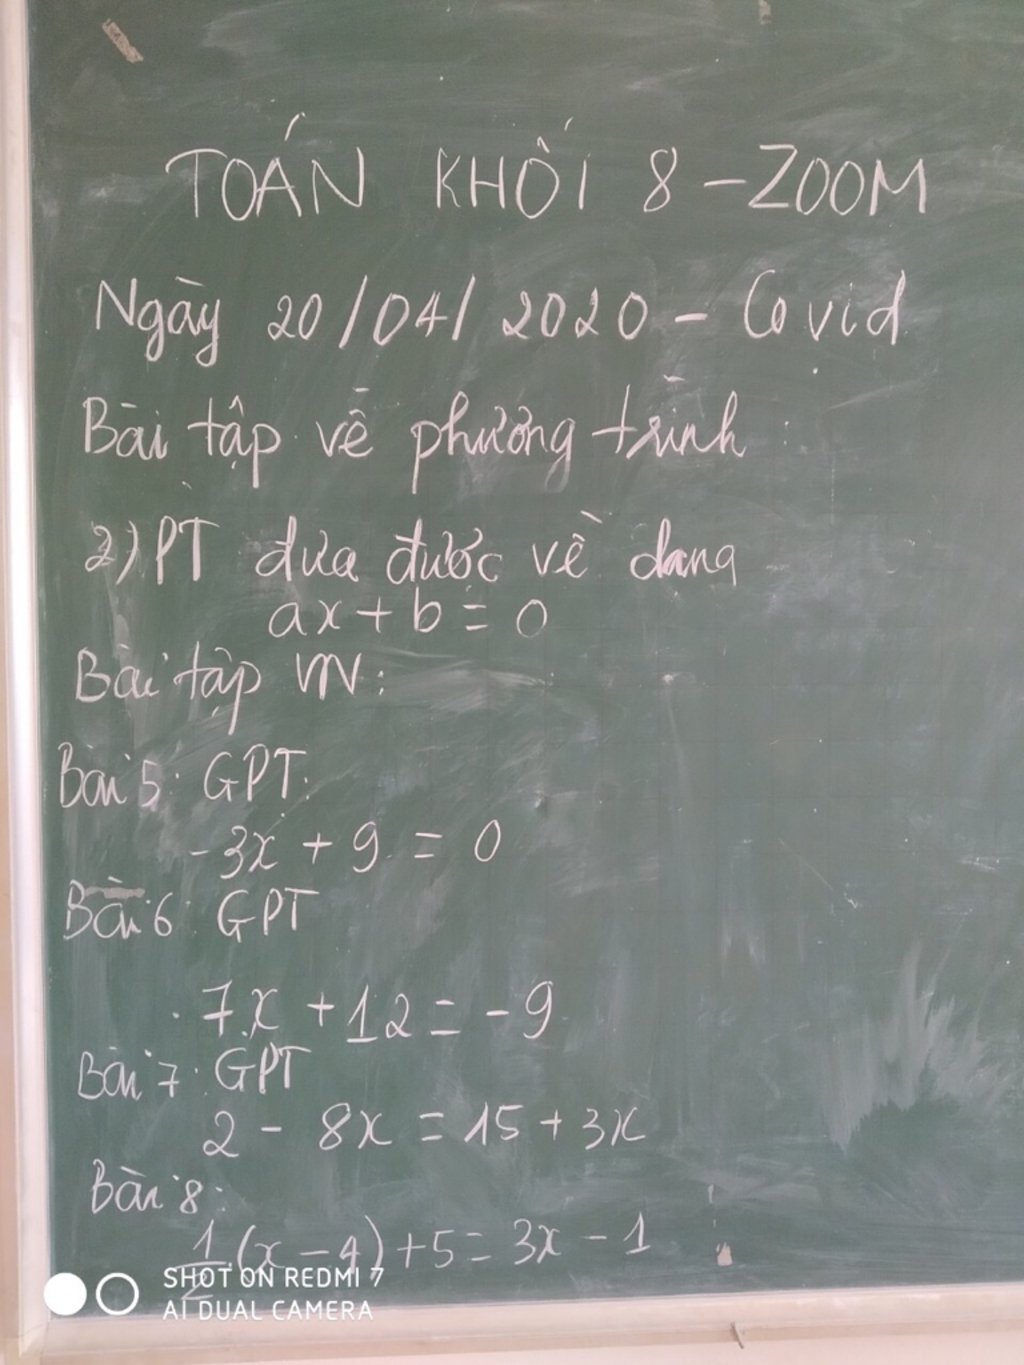 TOÁN KHỐI 8 - ZOOM
Ngày 20/04/2020 - Covid
Bài tập về phương trình :
2) PT đưa được về dạng
ax + b = 0
Bài tập VN:
Bài 5: GPT:
-3x + 9 = 0
Bài 6: GPT
7x + 12 = -9
Bài 7: GPT
2 - 8x = 15 + 3x
Bài 8:
1/2 (x - 4) + 5 = 3x - 1
SHOT ON REDMI 7
AI DUAL CAMERA